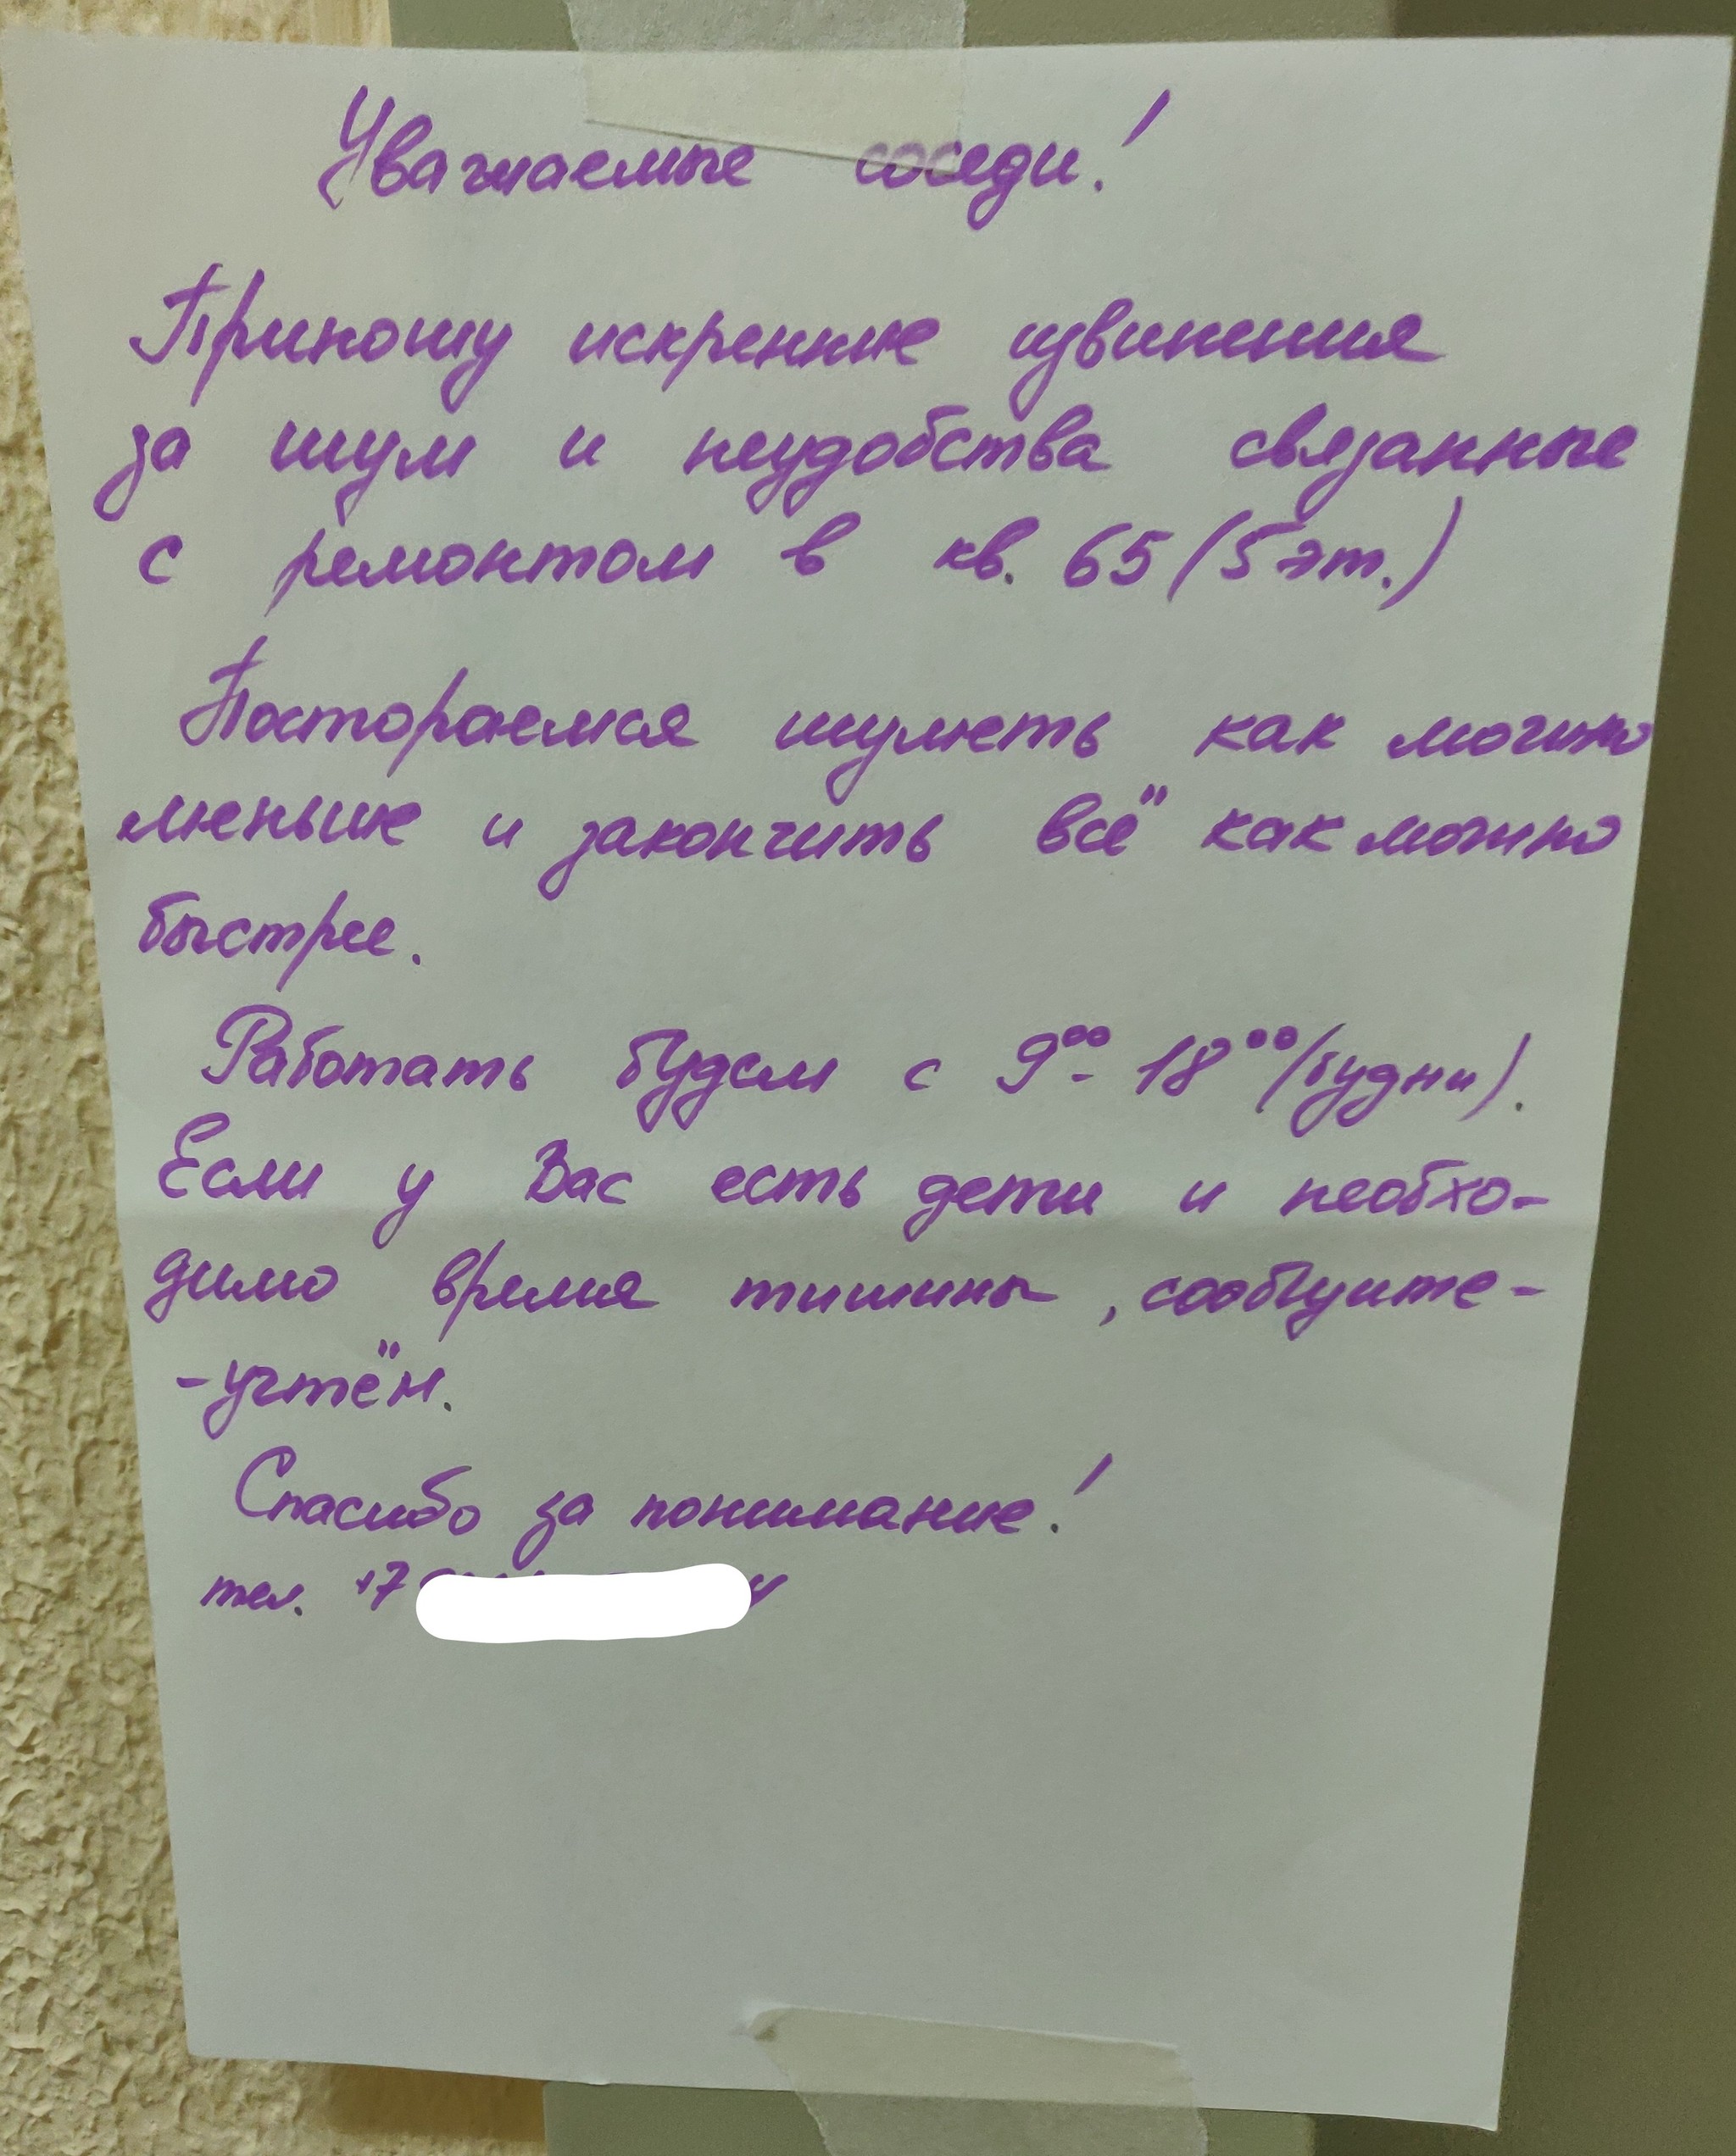 Уважаемые соседи!
Приношу искренние извинения
за шум и неудобства связанные
с ремонтом в кв. 65 (5 эт.)
Постораемся шуметь как можно
меньше и закончить всё как можно
быстрее.
Работать будем с 9⁰⁰- 18⁰⁰ (будни).
Если у Вас есть дети и необхо-
димо время тишины, сообщите -
- учтём.
Спасибо за понимание!
тел. +7